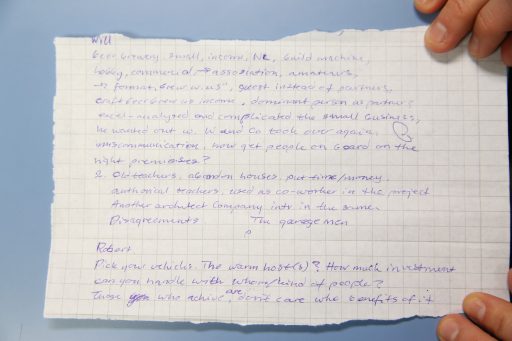 Will
Beer brewery, small, income, NL, build machine,
hobby, commercial, → association, amateurs,
→ format, Brew w. us", guest instead of partners,
craft beer brew as income, dominant person as partners
excel-analysed and complicated the small business,
he wanted out w. W and Co took over again,
miscommunication, how get people on board on the
right premisses?
2. Old teachers, abandon houses, put time/money,
teachers, used as co-worker in the project
Another architect Company intr in the same
Disagreements The garage men
Robert
Pick your vehicles. The warm host(s)? How much investment
can you handle with whom/kind of people?
Those who achive are, don't care who benefits of it